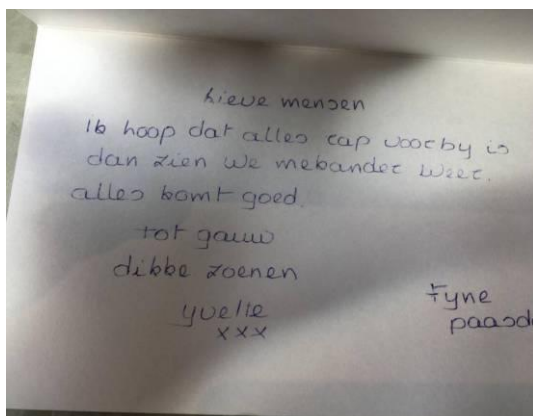 Lieve mensen
Ik hoop dat alles rap voorby is
dan zien we mekander weer.
alles komt goed.
tot gauw
dikke zoenen
yvette
xxx
Fyne
paasd